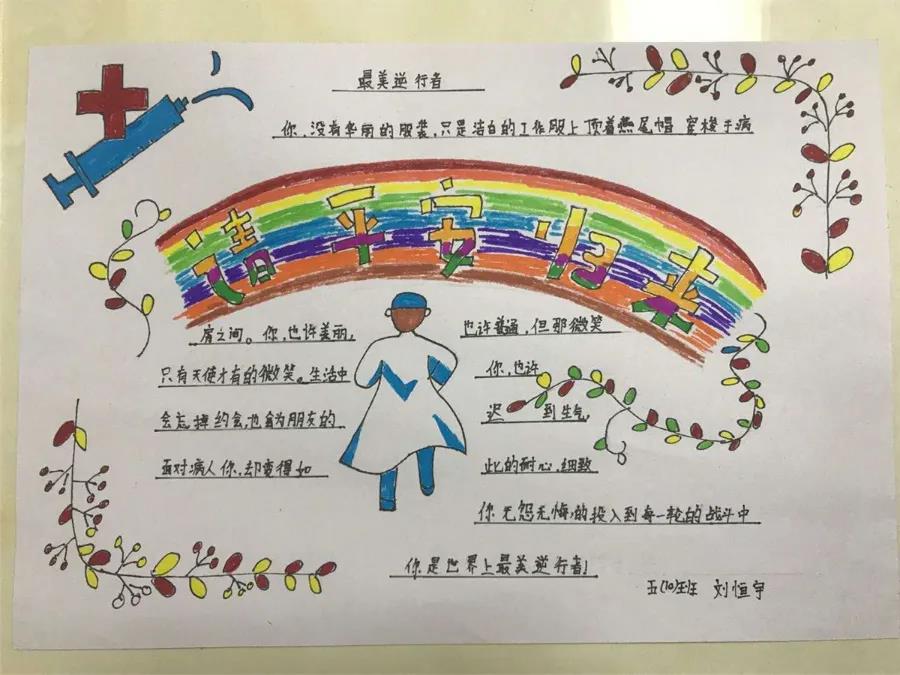 最美逆行者
你,没有华丽的服装,只是洁白的工作服上顶着燕尾帽 穿梭于病
请平安归来
房之间。你,也许美丽, 也许普通,但那微笑
只有天使才有的微笑。生活中 你,也许
会忘掉约会,也会为朋友的 迟 到生气,
面对病人你,却变得如 此的耐心,细致
你无怨无悔,的投入到每一轮的战斗中
你是世界上最美逆行者!
五(10)班 刘恒宇